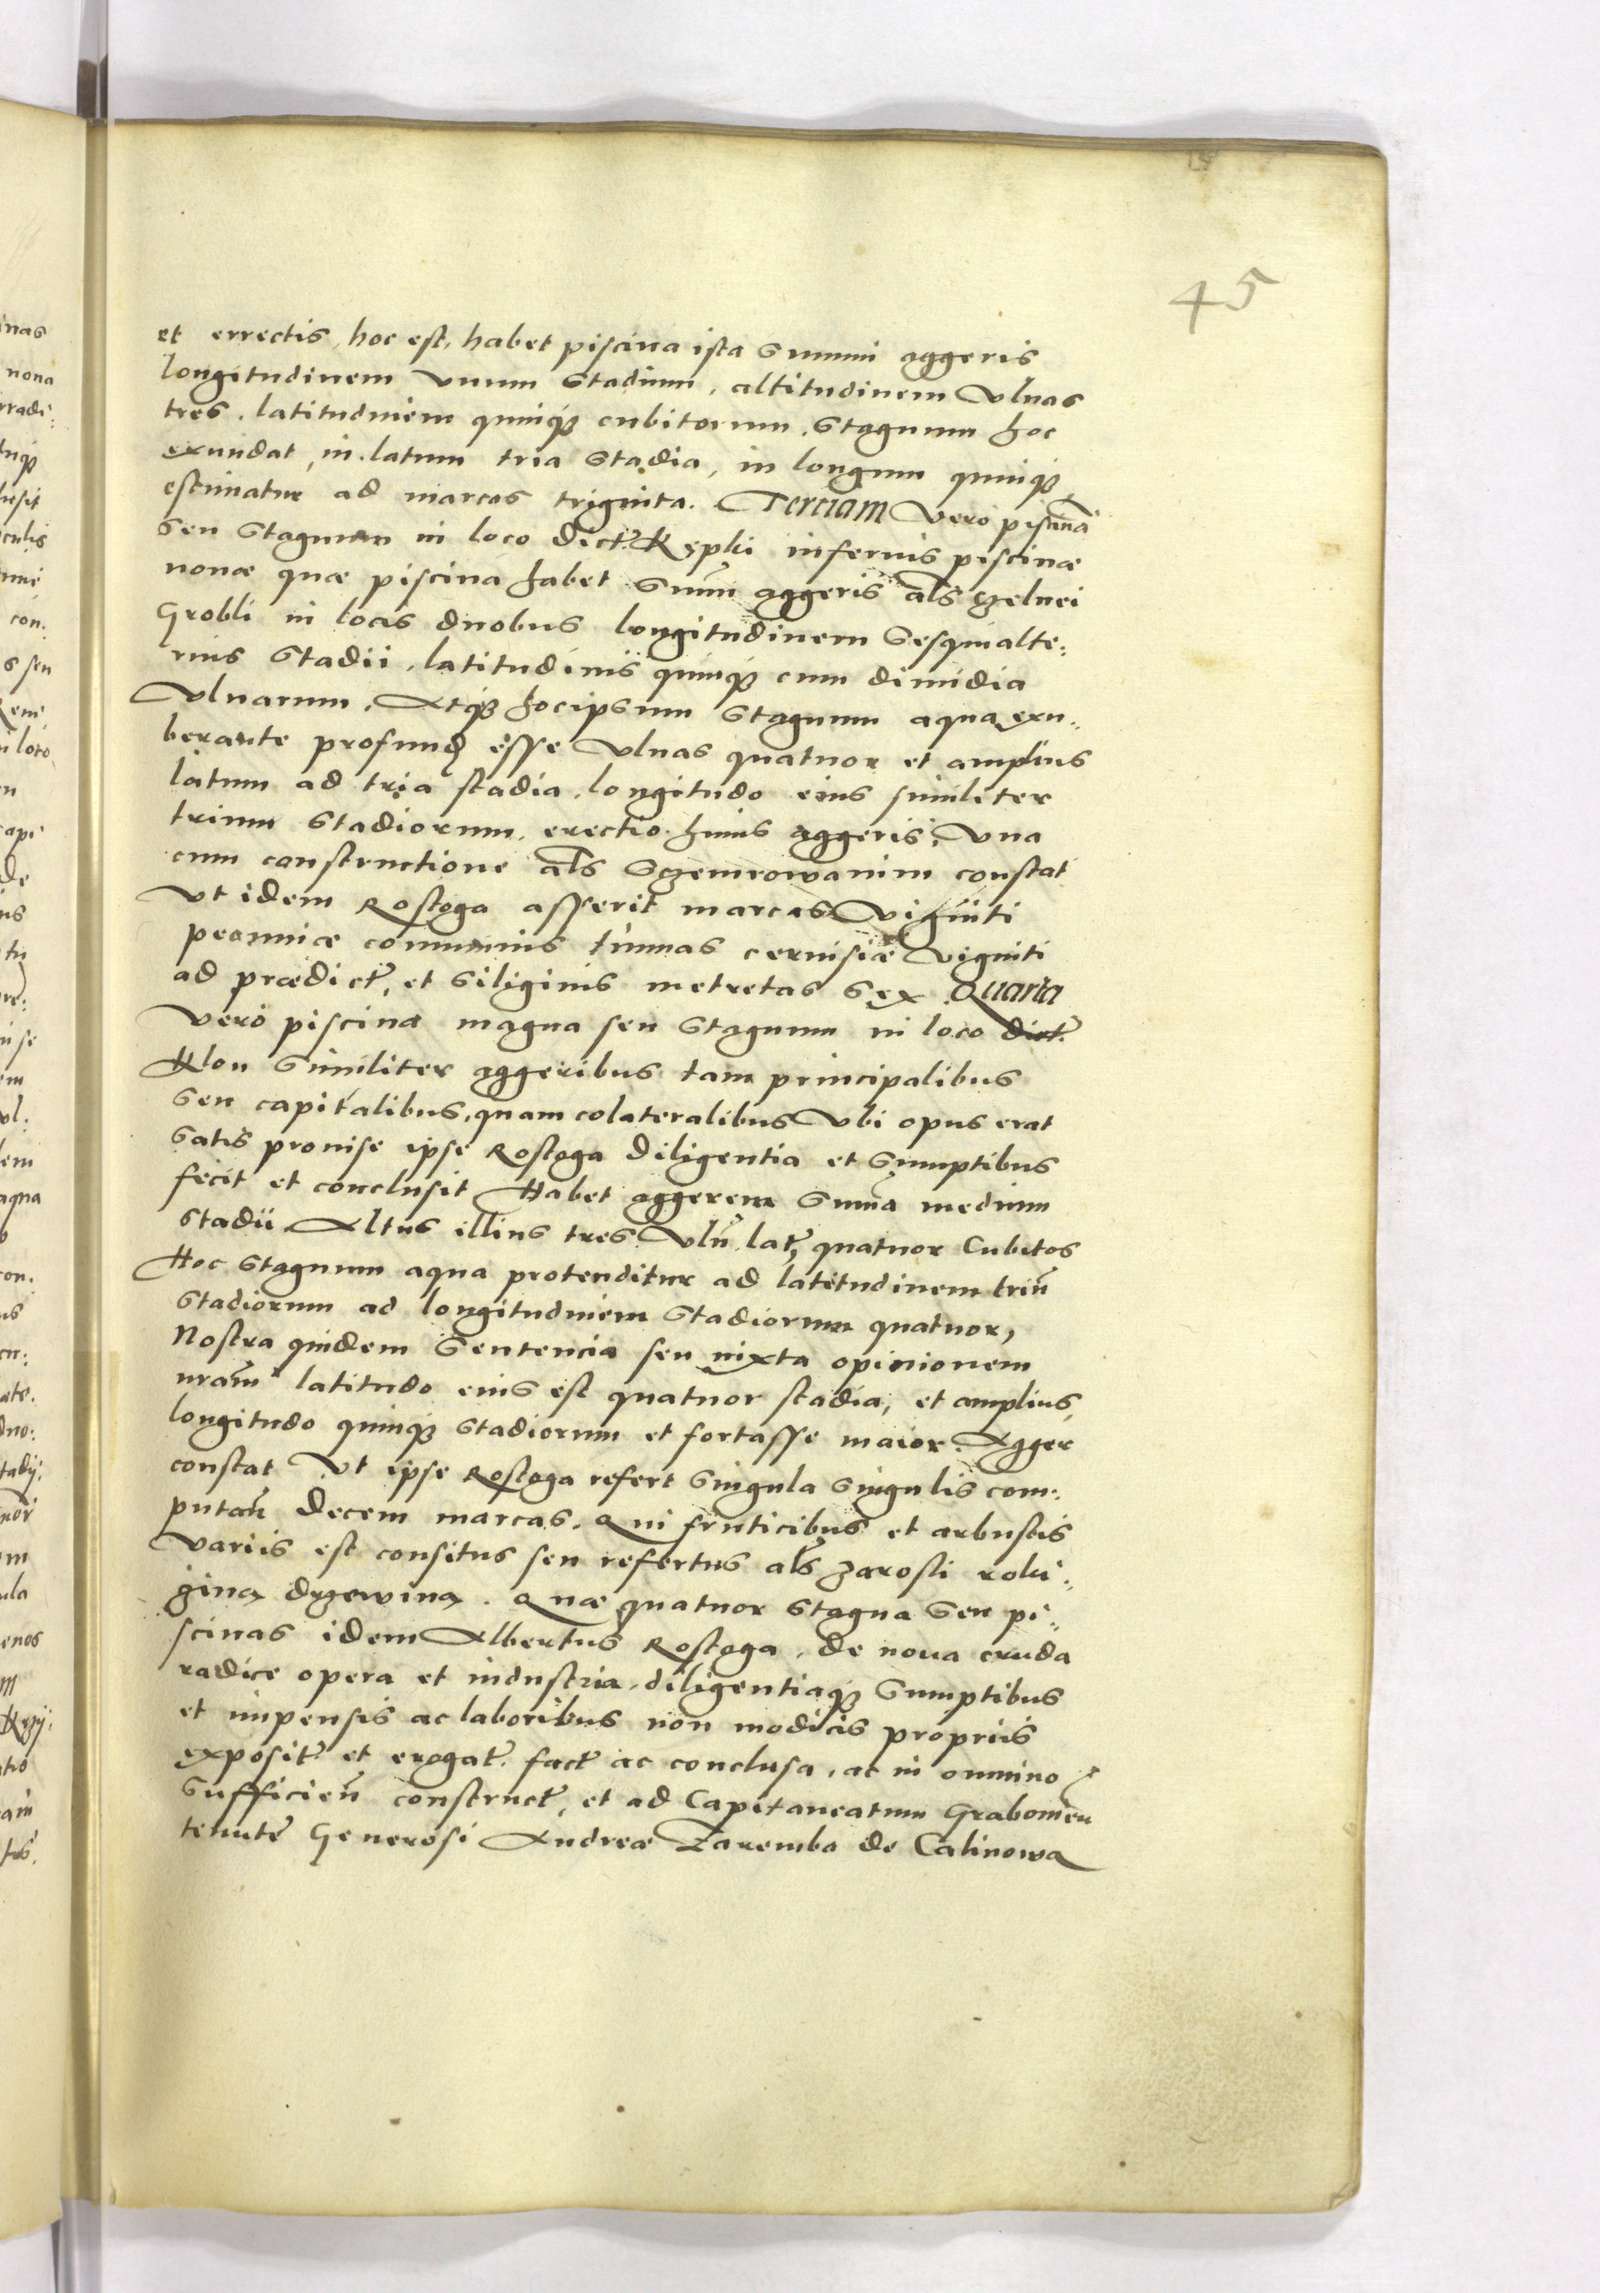 45
et errectis, hoc est, habet piscina ista Summi aggeris
longitudinem vnum Stadium, altitudinem vlnas
tres, latitudinem quinqꝫ cubitorum, Stagnum hoc
exundat, in latum tria Stadia, in longum quinqꝫ
estimatur ad marcas triginta. Terciam vero piscinā
Seu Stagnum in loco dict. Kępki inferius piscinæ
nonæ quæ piscina habet Sum̄ aggeris als czelnei
Grobli in locis duobus longitudinem Sesquialte:
rius Stadii, latitudinis quinqꝫ cum dimidia
vlnarum, Atqꝫ hocipsum Stagnum aqua exu:
berante profund esse vlnas quatuor et amplius
latum ad tria stadia, longitudo eius similiter
trium Stadiorum, erectio huius aggeris, vna
cum constructione als Sczemrowanim constat
vt idem Rostoga asserit marcas viginti
pecuniæ communis tunnas cervisiæ viginti
ad prædict, et Siliginis metretas Sex Quarta
vero piscina magna seu Stagnum in loco dict.
Klon Similiter aggeribus tam principalibus
Seu capitalibus, quam colateralibus vbi opus erat
Satis provise ipse Rostoga diligentia et Sumptibus
fecit et conclusit Habet aggerem Sum̄a medium
Stadii Altus illius tres vln̄ lat, quatuor Cubitos
Hoc Stagnum aqua protenditur ad latitudinem triū
Stadiorum ad longitudinem Stadiorum quatuor,
Nostra quidem Sentencia seu iuxta opinionem
nram̄ latitudo eius est quatuor stadia, et amplius,
longitudo quinqꝫ Stadiorum et fortasse maior. Agger
constat vt ipse Rostoga refert Singula Singulis com:
putan̄ decem marcas. Qui fruticibus et arbustis
variis est consitus seu refertus als Zarosli roki:
ziną drzewiną. Quæ quatuor Stagna Seu pi:
scinas idem Albertus Rostoga, de noua cruda
radice opera et industria, diligentiaqꝫ Sumptibus
et impensis ac laboribus non modicis propriis
exposit et erogat. fact ac conclusa, ac in omnino
Sufficien̄ construct, et ad Capitaneatum Grabouien
tenute Generosi Andreæ Zaremba de Calinowa